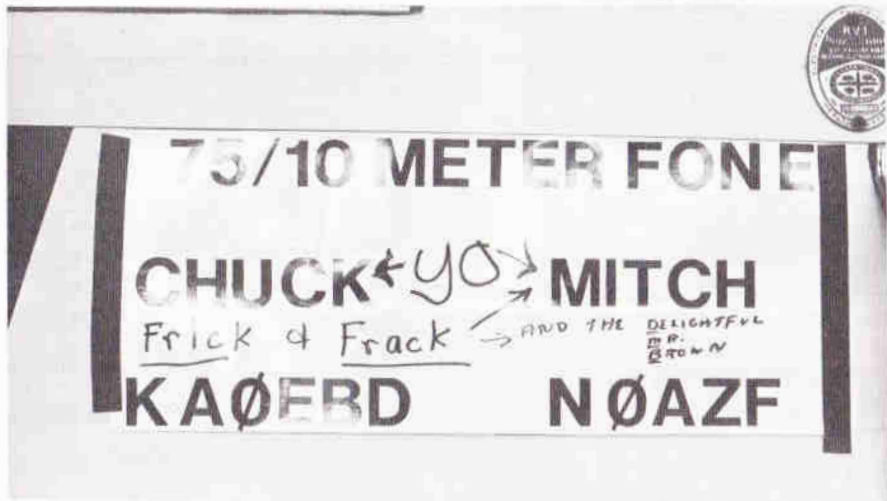 RV1
75/10 METER FONE
CHUCK ← YO → MITCH
Frick & Frack → AND THE DELIGHTFUL
MR.
BROWN
KAØEBD NØAZF